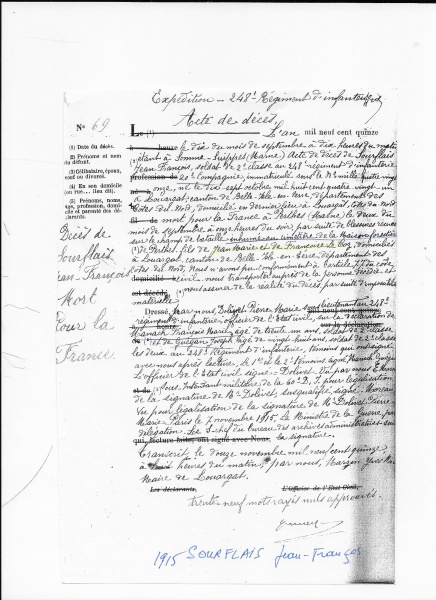 Expédition - 248e Régiment d'infanterie
Acte de décès.
No 69
Le (1) L'an mil neuf cent quinze
heure le dix du mois de septembre à dix heures du matin
étant à Somme-Suippes (Marne) Acte de décès de Sourflais
Jean François, soldat de 2e classe au 248e régiment d'infanterie
profession de 20e Compagnie, immatriculé sous le No mille quatre vingt
onze, né le dix sept octobre mil huit cent quatre vingt-un
à Louargat, canton de Belle-Isle-en-Terre, département des
Côtes du Nord, domicilié en dernier lieu à Louargat, Côtes du Nord
mort pour la France à Perthes (Marne) le deux du
mois de septembre à onze heures du soir, par suite de blessures reçues
sur le champ de bataille, inhumé au cimetière de la Maison forestière
de Perthes, fils de Jean Marie et de Françoise Le Coz, domiciliés
à Louargat, canton de Belle-Isle-en-Terre département des
Côtes du Nord. Nous n'avons pu conformément à l'article 77 du code
domicilié civil, nous transporter auprès de la personne décédée et
est décédé nous assurer de la réalité du décès, par suite d'impossibilité
matérielle.
Dressé par nous Dolivet Pierre Marie sous lieutenant au 248e
régiment d'infanterie officier de l'État civil, sur la déclaration de
Manach François Marie, âgé de trente un ans, soldat de 2e classe
et de Guégan Joseph âgé de vingt huit ans, soldat de 2e classe
les deux au 248e Régiment d'infanterie, témoins qui ont signé
avec nous après lecture. Le 1er et le 2e témoins signé Manach Guégan
L'officier de l'État civil signé - Dolivet. Vu par nous
et de nous, Intendant militaire de la 60e D. I. pour légalisation
de la signature de Mr Dolivet, susqualifié, signé
Vu pour légalisation de la signature de Mr Dolivet Pierre
Marie Paris le 7 novembre 1915. Le Ministre de la Guerre, par
délégation. Le S/chef du Bureau des archives administratives
qui, lecture faite, ont signé avec Nous. la signature.
Transcrit le douze novembre mil neuf cent quinze
à heures du matin, par nous, Yves
Maire de Louargat.
Les déclarants, L'Officier de l'État Civil,
trente-neuf mots rayés nuls approuvés.
(1) Date du décès.
(2) Prénoms et nom du défunt.
(3) Célibataire, époux, veuf ou divorcé.
(4) En son domicile (ou rue... lieu dit).
(5) Prénoms, noms, profession, domicile et parenté des déclarants.
Décès de
Sourflais
Jean-François
Mort
Pour la
France.
1915 SOURFLAIS Jean-François